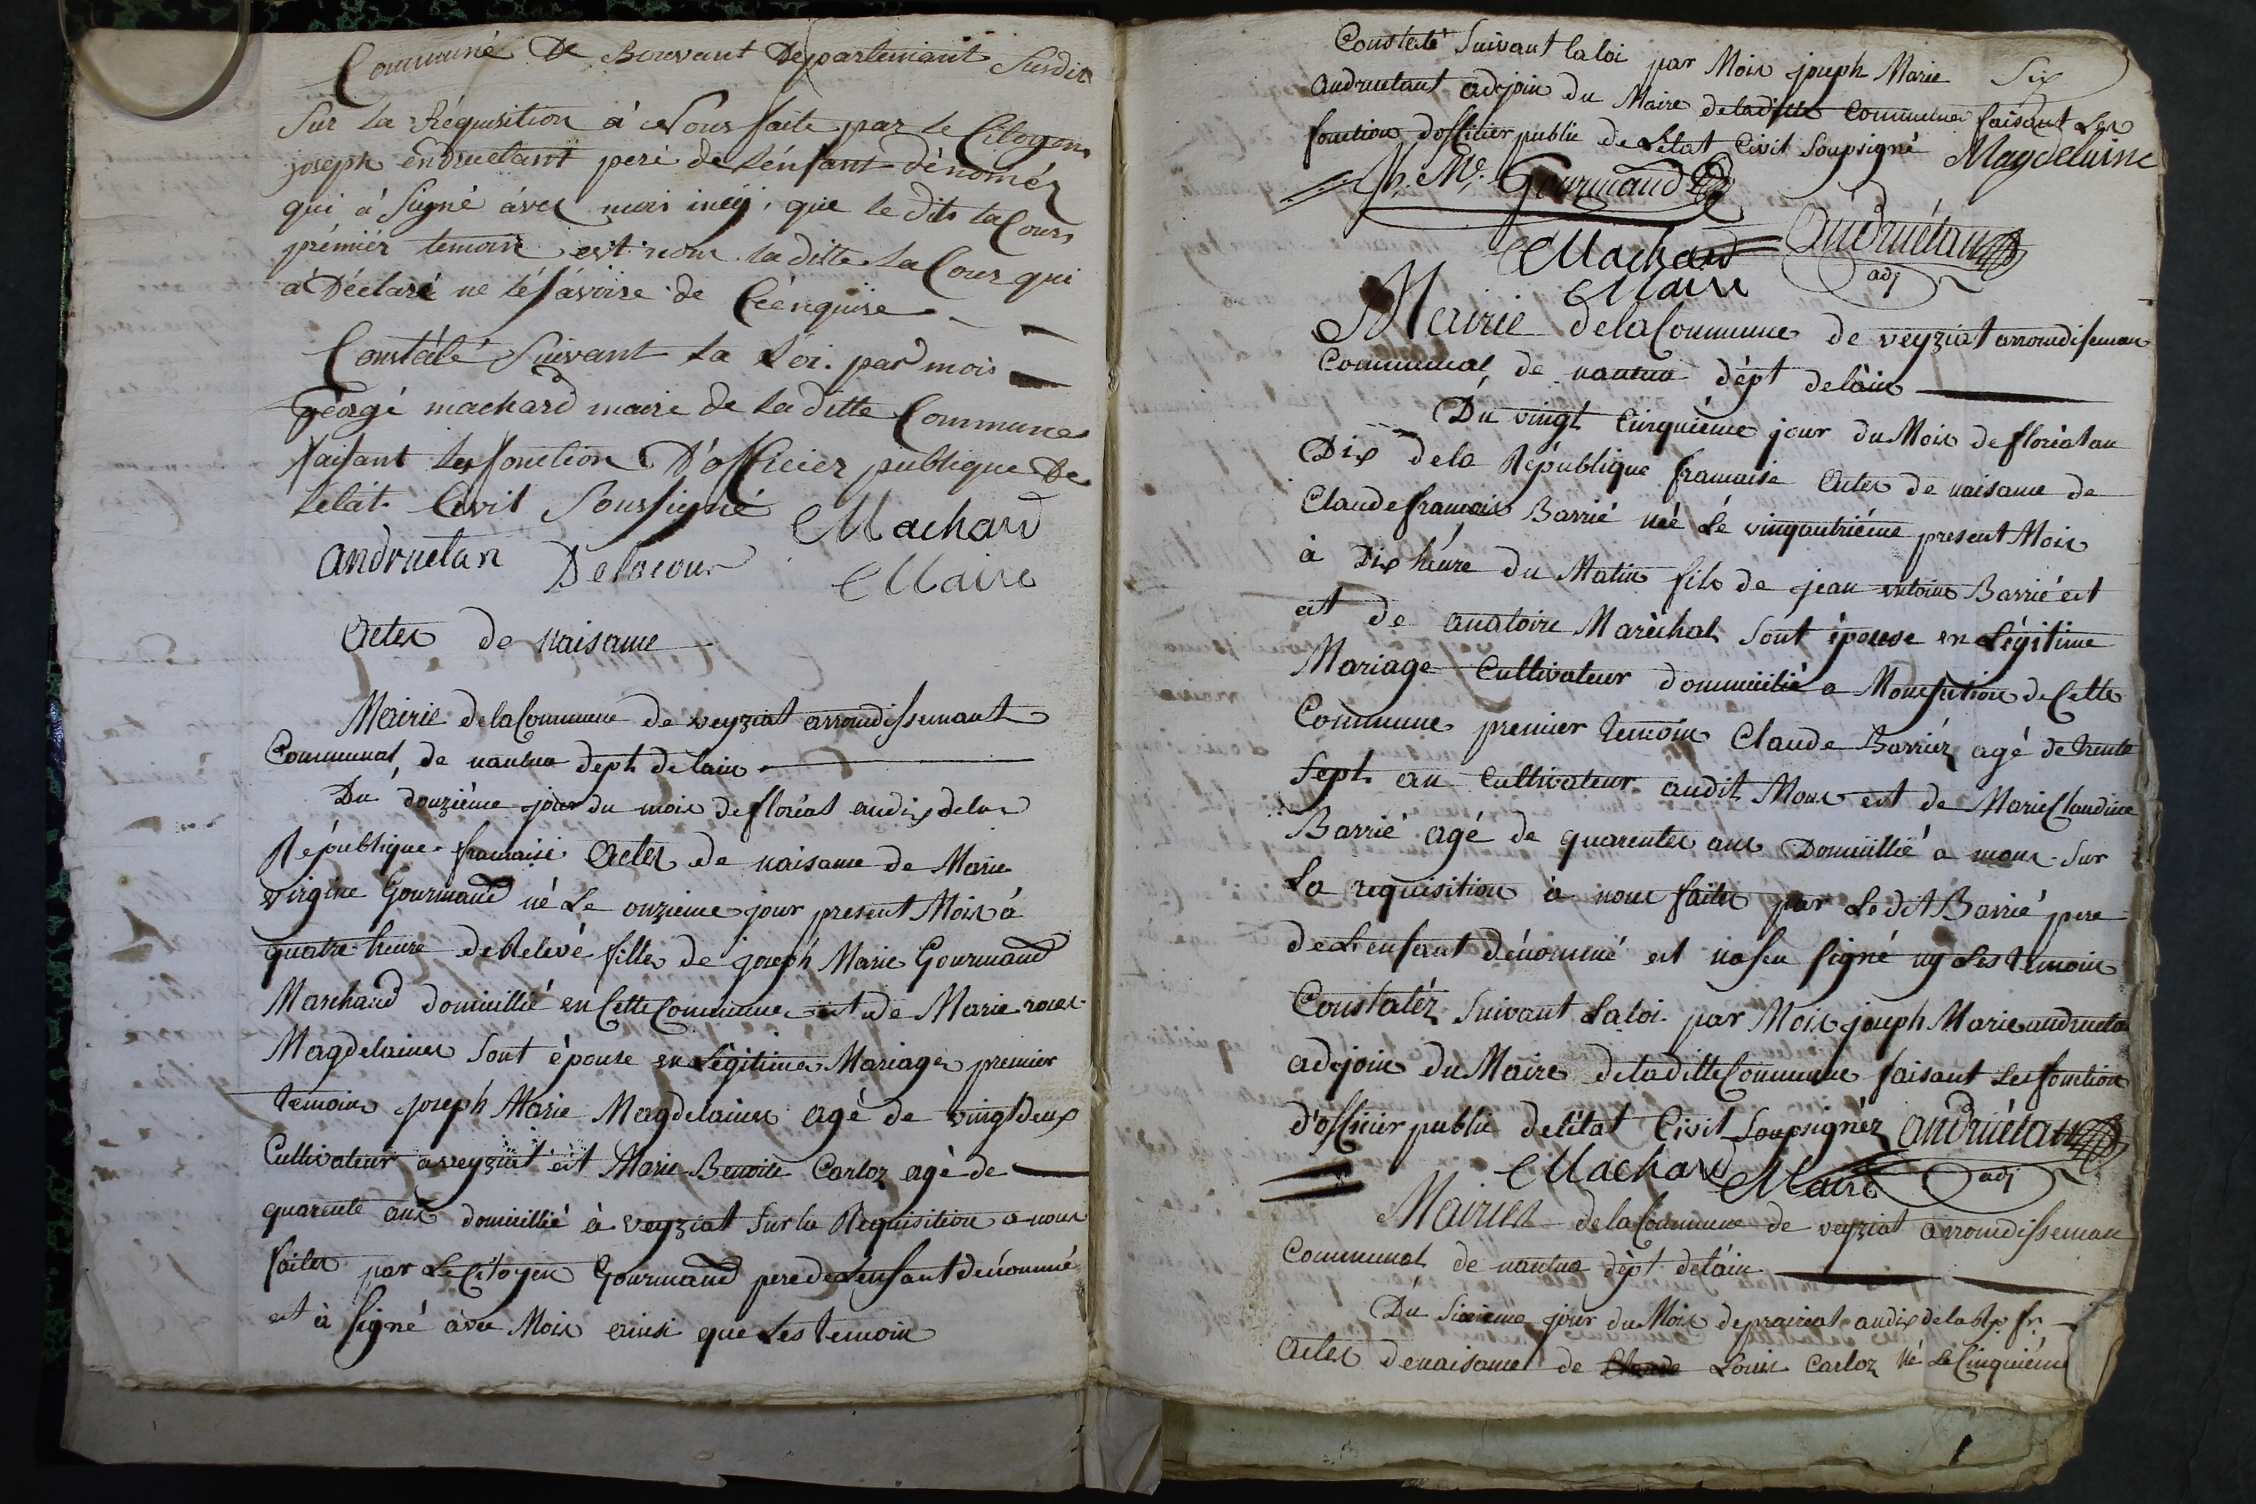 Commune De Bouvant Departemant Susdit
Sur la Réquisition à Nous faite par le Citoyen
joseph endruetant peré de L'énfant dénomér
qui à Signé ávec mois inéÿ, que le dit laCour
prémiér temoin est nom laditte LaCour qui
à Déclaré ne lé sávoire de Ceénquise
Constaté Suivant La Loi. par mois
géorgé machard maire de La ditte Commune
faisant Les fonction D'officier publique De
Létat Civil Soussigné Machard
andruetan Delacour Maire
Actes de naisance
Mairie delaCommune de veyziat arrondissemant
Communal de nantua dept delain
Du douzième jour du mois de floréal andix dela
République francaise Actes de naisance de Marie
virgine Gourmand né Le onzieme jour present Mois à
quatre heure deRelevé fille de joseph Marie Gourmand
Marchand domicillié en CetteCommune et de Marie roses
Magdelaines Sont épouse en Légitime Mariage premier
temoins joseph Marie Magdelaines agé de vingtdeux
Cultivateur aveyziat et Marie Benoite Carloz agé de
quarente ans domicillié à veyziat Sur la Requisition a nous
faites par LeCitoyen Gourmand pere deLenfant dénommé
et à Signé àvec Mois ainsi que Les temoin
Constaté Suivant la loi par Mois joseph Marie Six
andruetant adjoin du Maire deladitte Commune faisant Les
fonction dofficier public de Létat Civil Soupsigné Magdelaine
Jh. Me. Gourmand
Machard andruétan
Maire adj
Mairie delaCommune de veyziat arrondiseman
Communal de nantua dépt delàin
Du vingt Cinquiéme jour duMois de floréal an
Dix dela République francaise Actes de naisance de
Claudefrancois Barrié néé Le vingquatriéme present Mois
à Dix héure du Matin fils de jean antoine Barrié et
et de anatoire Maréchal Sont épouse en Légitime
Mariage Cultivateur dommicilié a Monsfution de Cette
Commune premier temoin Claude Barriér agé de trente
Sept an Cultivateur audit Mons et de Marie Claudine
Barrié agé de quarentes ans Domicillié a mons Sur
La requisition à nous faites par Ledit Barrié pere
deLenfant dénommé et nasçu Signé ny Les temoin
Constatér Suivant Laloi par Mois joseph Marie andrueta
adjoin du Maire deladitteCommune faisant Les fonction
d'officier public delétat Civil Soupsignér andruétan
Machard Maire adj
Mairies delaCommune de veyziat arrondisseman
Communal de nantua dépt delàin
Du Sixieme jour duMois deprairial andix delaRp. fr.
Actes denaisance de Louis Carloz Né Le Cinquiéme